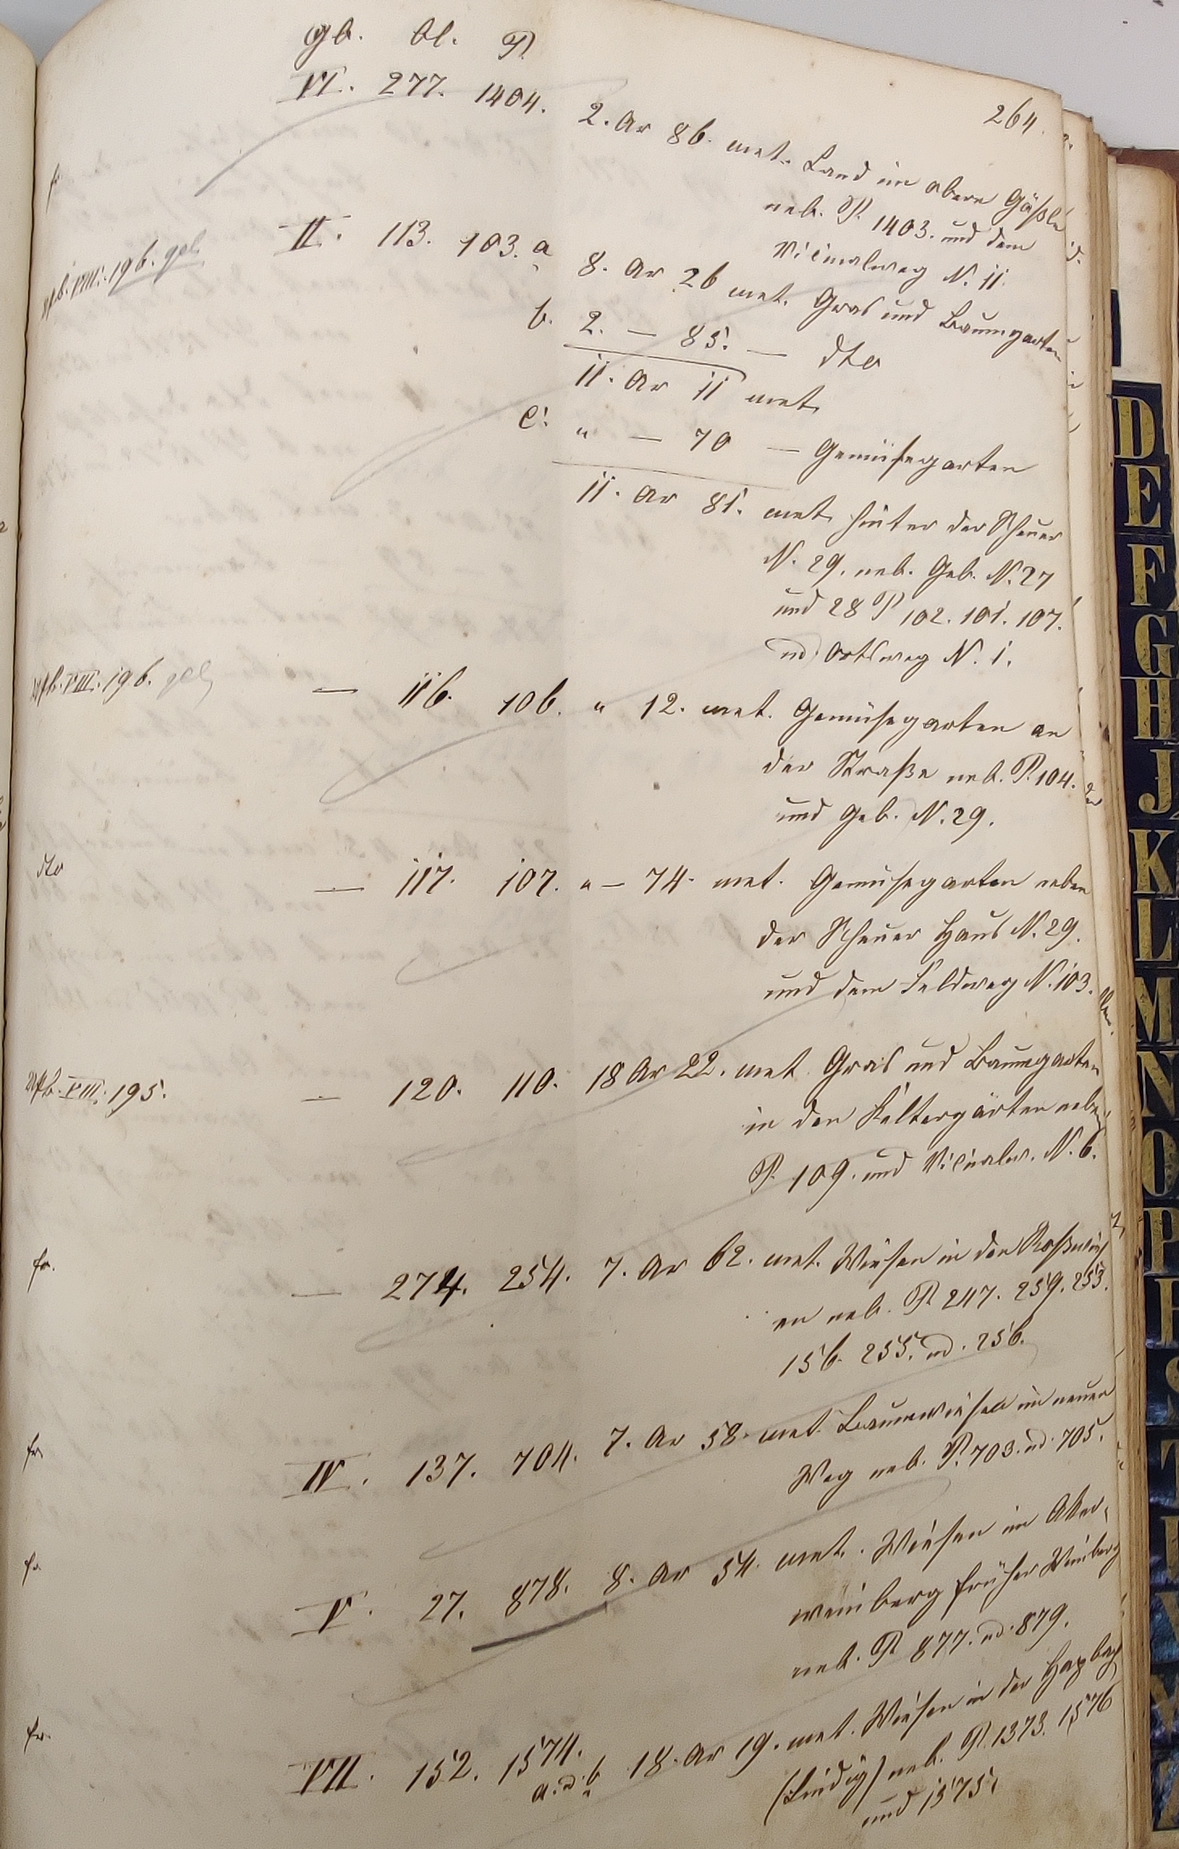 gb. bl. P.
264.
VI. 277. 1404. 2. Ar 86. met. Land im obern Gäßle
neb. P. 1403. und dem
Vicinalweg N. 11.
fr.
Upb. VIII. 196. gel.
II. 113. 103. a. 8. Ar 26 met. Gras und Baumgarten
b. 2. — 85. — dto
11. Ar 11 met.
c. " — 70 — Gemüsegarten
11. Ar 81. met. hinter der Scheuer
N. 29. neb. Geb. N. 27
und 28 P 102. 101. 107.
ud Ortsweg N. 1.
Upb. VIII. 196. gel
— 116. 106. " 12. met. Gemüsegarten an
der Straße neb. P. 104.
und Geb. N. 29.
dto
— 117. 107. " — 74. met. Gemüsegarten neben
der Scheuer Haus N. 29.
und dem Feldweg N. 103.
Upb. VIII. 195.
— 120. 110. 18 Ar 22. met. Gras und Baumgarten
in den Keltergärten neben
P. 109. und Vicinalw. N. 6.
fr.
— 274. 254. 7. Ar 62. met. Wiesen in den
en neb. P. 247. 259. 253.
156. 255. ud. 256.
fr.
IV. 137. 704. 7. Ar 58. met. Baumwiesen im neuen
Weg neb. P. 703. ud. 705.
fr.
V. 27. 878. 8. Ar 54. met. Wiesen im
weinberg früher Weinberg
neb. P. 877. ud. 879.
fr.
VII. 152. 1574. a. u. b 18. Ar 19. met. Wiesen in der
neb. P. 1373. 1576
und 1575.
D
E
F
G
H
J
K
L
M
N
O
P